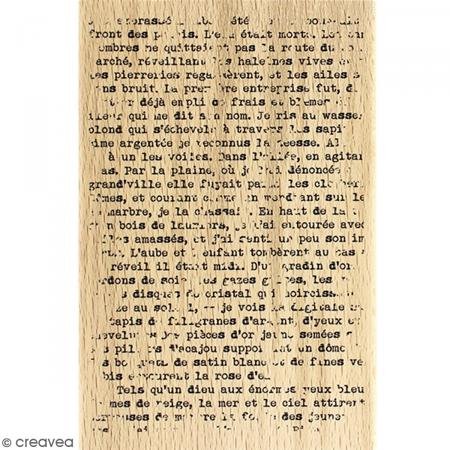 été
front des L'eau était morte. Les
ombres ne quittaient pas la route du
arché, réveillant les haleines vives
les pierreries regardèrent, et les ailes s
ns bruit. La première entreprise fut, d
déjà empli de frais et blêmes
fleur qui me dit son nom. Je ris au wasser
blond qui s'échevela à travers les sapi
ime argentée je reconnus la déesse. Al
à un les voiles. Dans l'allée, en agitan
as. Par la plaine, où je l'ai dénoncée
grand'ville elle fuyait parmi les clochers
mes, et courant comme un mendiant sur le
marbre, je la chassais. En haut de la
n bois de lauriers, je l'ai entourée avec
les amassés, et j'ai senti un peu son im
L'aube et l'enfant tombèrent au bas
réveil il était midi. D'un gradin d'or
rdons de soie, les gazes grises, les
s disques de cristal qui noirciss
ze au soleil, je vois la digitale
tapis de filigranes d'argent, d'yeux
evelures. Des pièces d'or jaune semées
s piliers d'acajou supportant un dôme
s bouquets de satin blanc et de fines ve
bis entourent la rose d'e
Tels qu'un dieu aux énormes yeux bleu
mes de neige, la mer et le ciel attirent
de marbre la foule des jeunes
© creavea